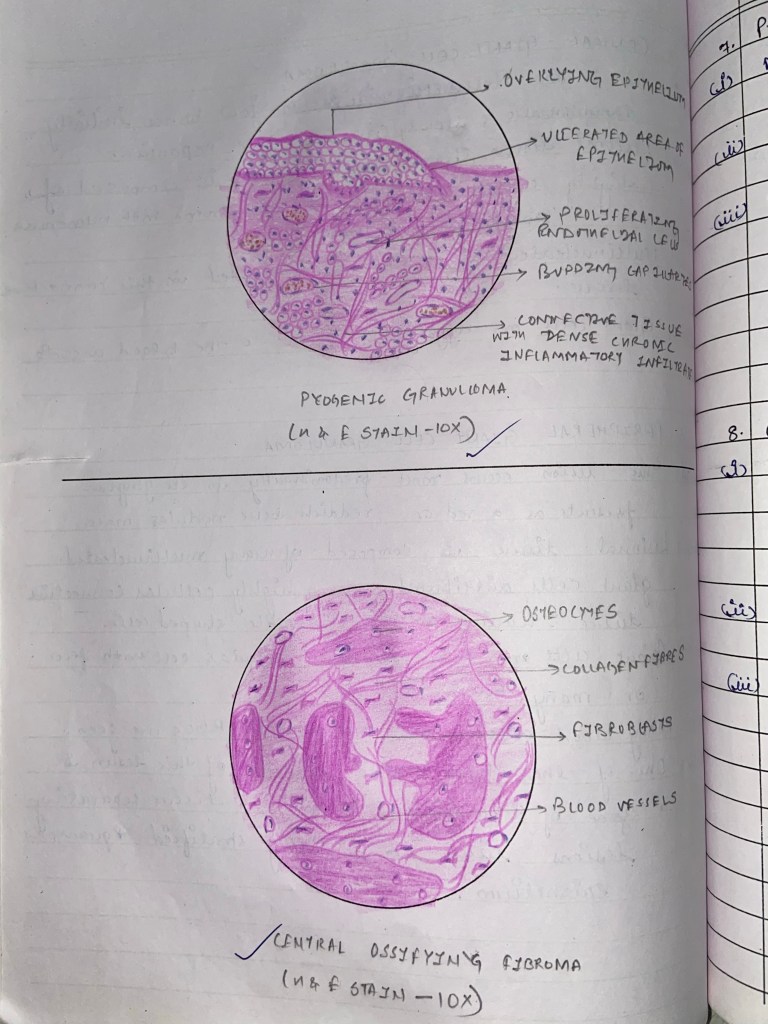 OVERLYING EPITHELIUM
ULCERATED AREA OF
EPITHELIUM
PROLIFERATING
ENDOTHELIAL CELL
BUDDING CAPILLARIES
CONNECTIVE TISSUE
WITH DENSE CHRONIC
INFLAMMATORY INFILTRATE
PYOGENIC GRANULIOMA.
(H & E STAIN-10X)
OSTEOCYTES
COLLAGEN FIBRES
FIBROBLASTS
BLOOD VESSELS
CENTRAL OSSIFYING FIBROMA
(H & E STAIN - 10X)
7. P
(i)
(ii)
(iii)
8.
(i)
(ii)
(iii)